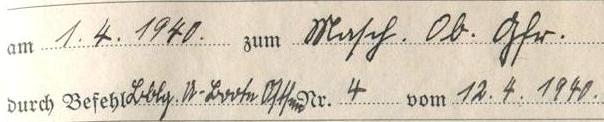 am 1.4.1940. zum Masch. Ob. Gfr.
durch Befehl Bblg. U-Boote Ostsee Nr. 4 vom 12.4.1940.